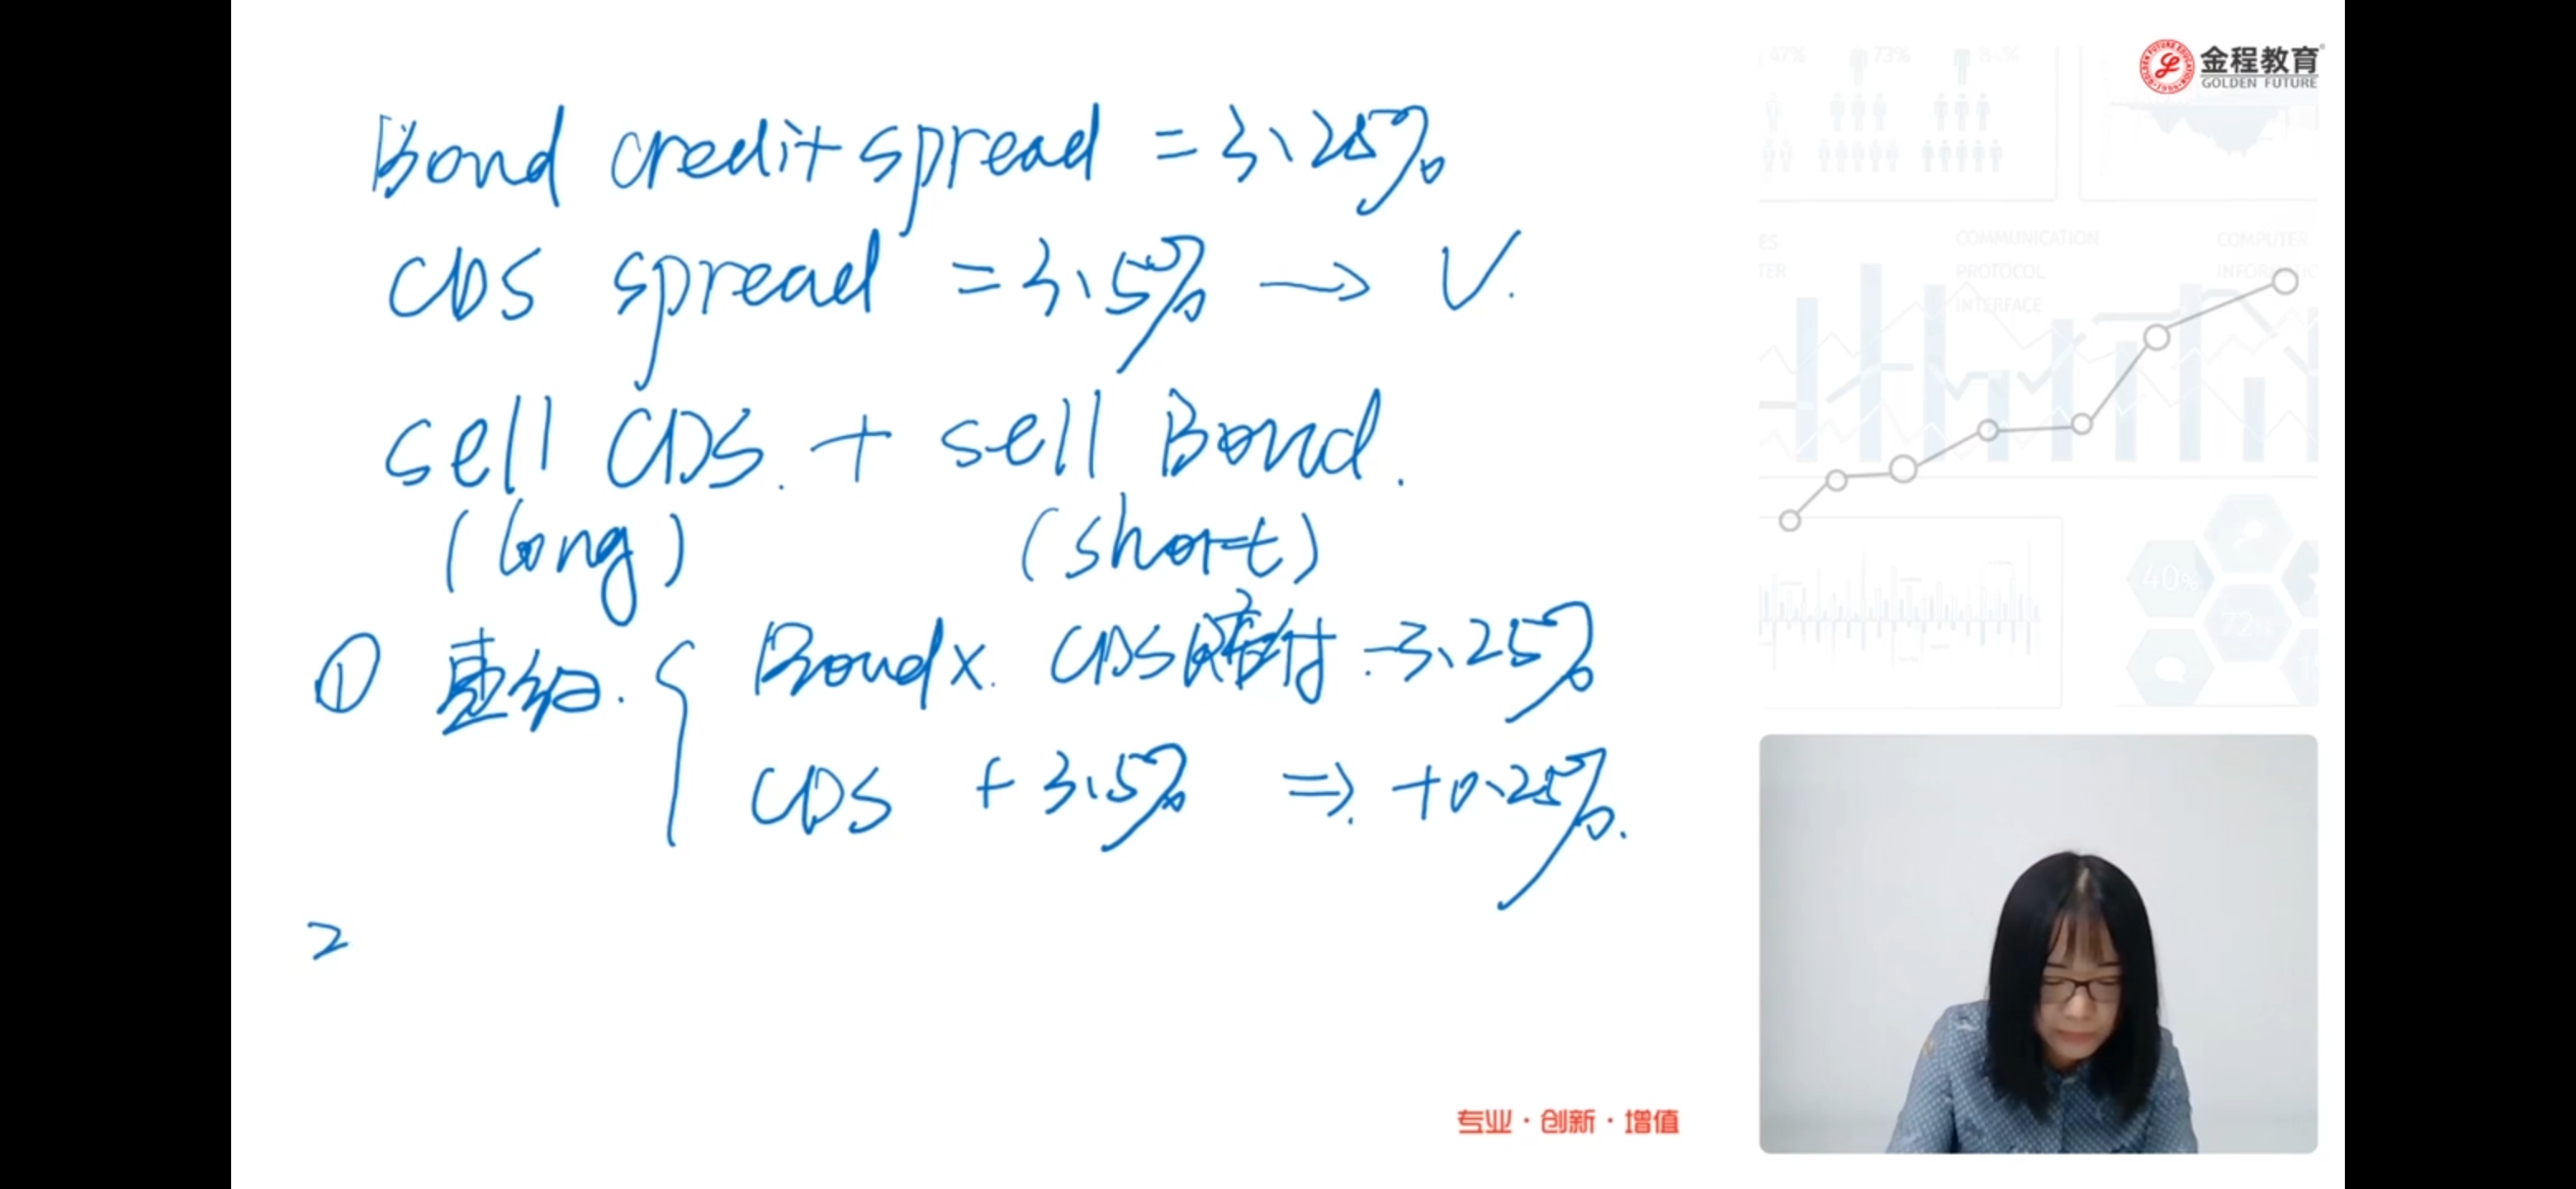 金程教育
GOLDEN FUTURE
Bond credit spread = 3.25%
CDS spread = 3.5% → V.
sell CDS. + sell Bond.
(long) (short)
① 违约. { Bond x. CDS赔付 -3.25%
CDS + 3.5% ⇒ +0.25%.
2
47% 73%
COMMUNICATION
PROTOCOL
INTERFACE
COMPUTER
40%
72%
专业·创新·增值